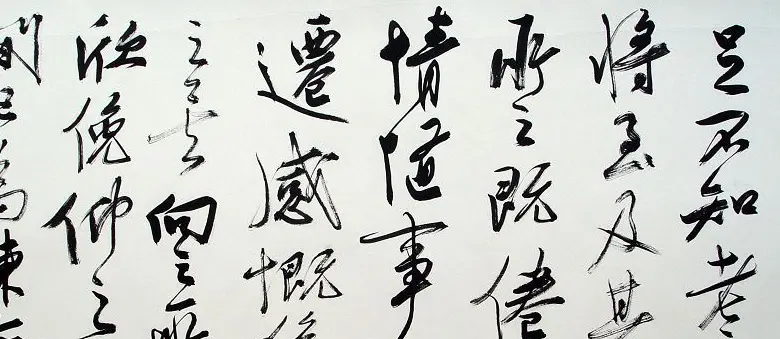 足不知老
將至及其
所之既倦
情隨事
遷感慨
之矣向之所
欣俛仰之
間已為陳